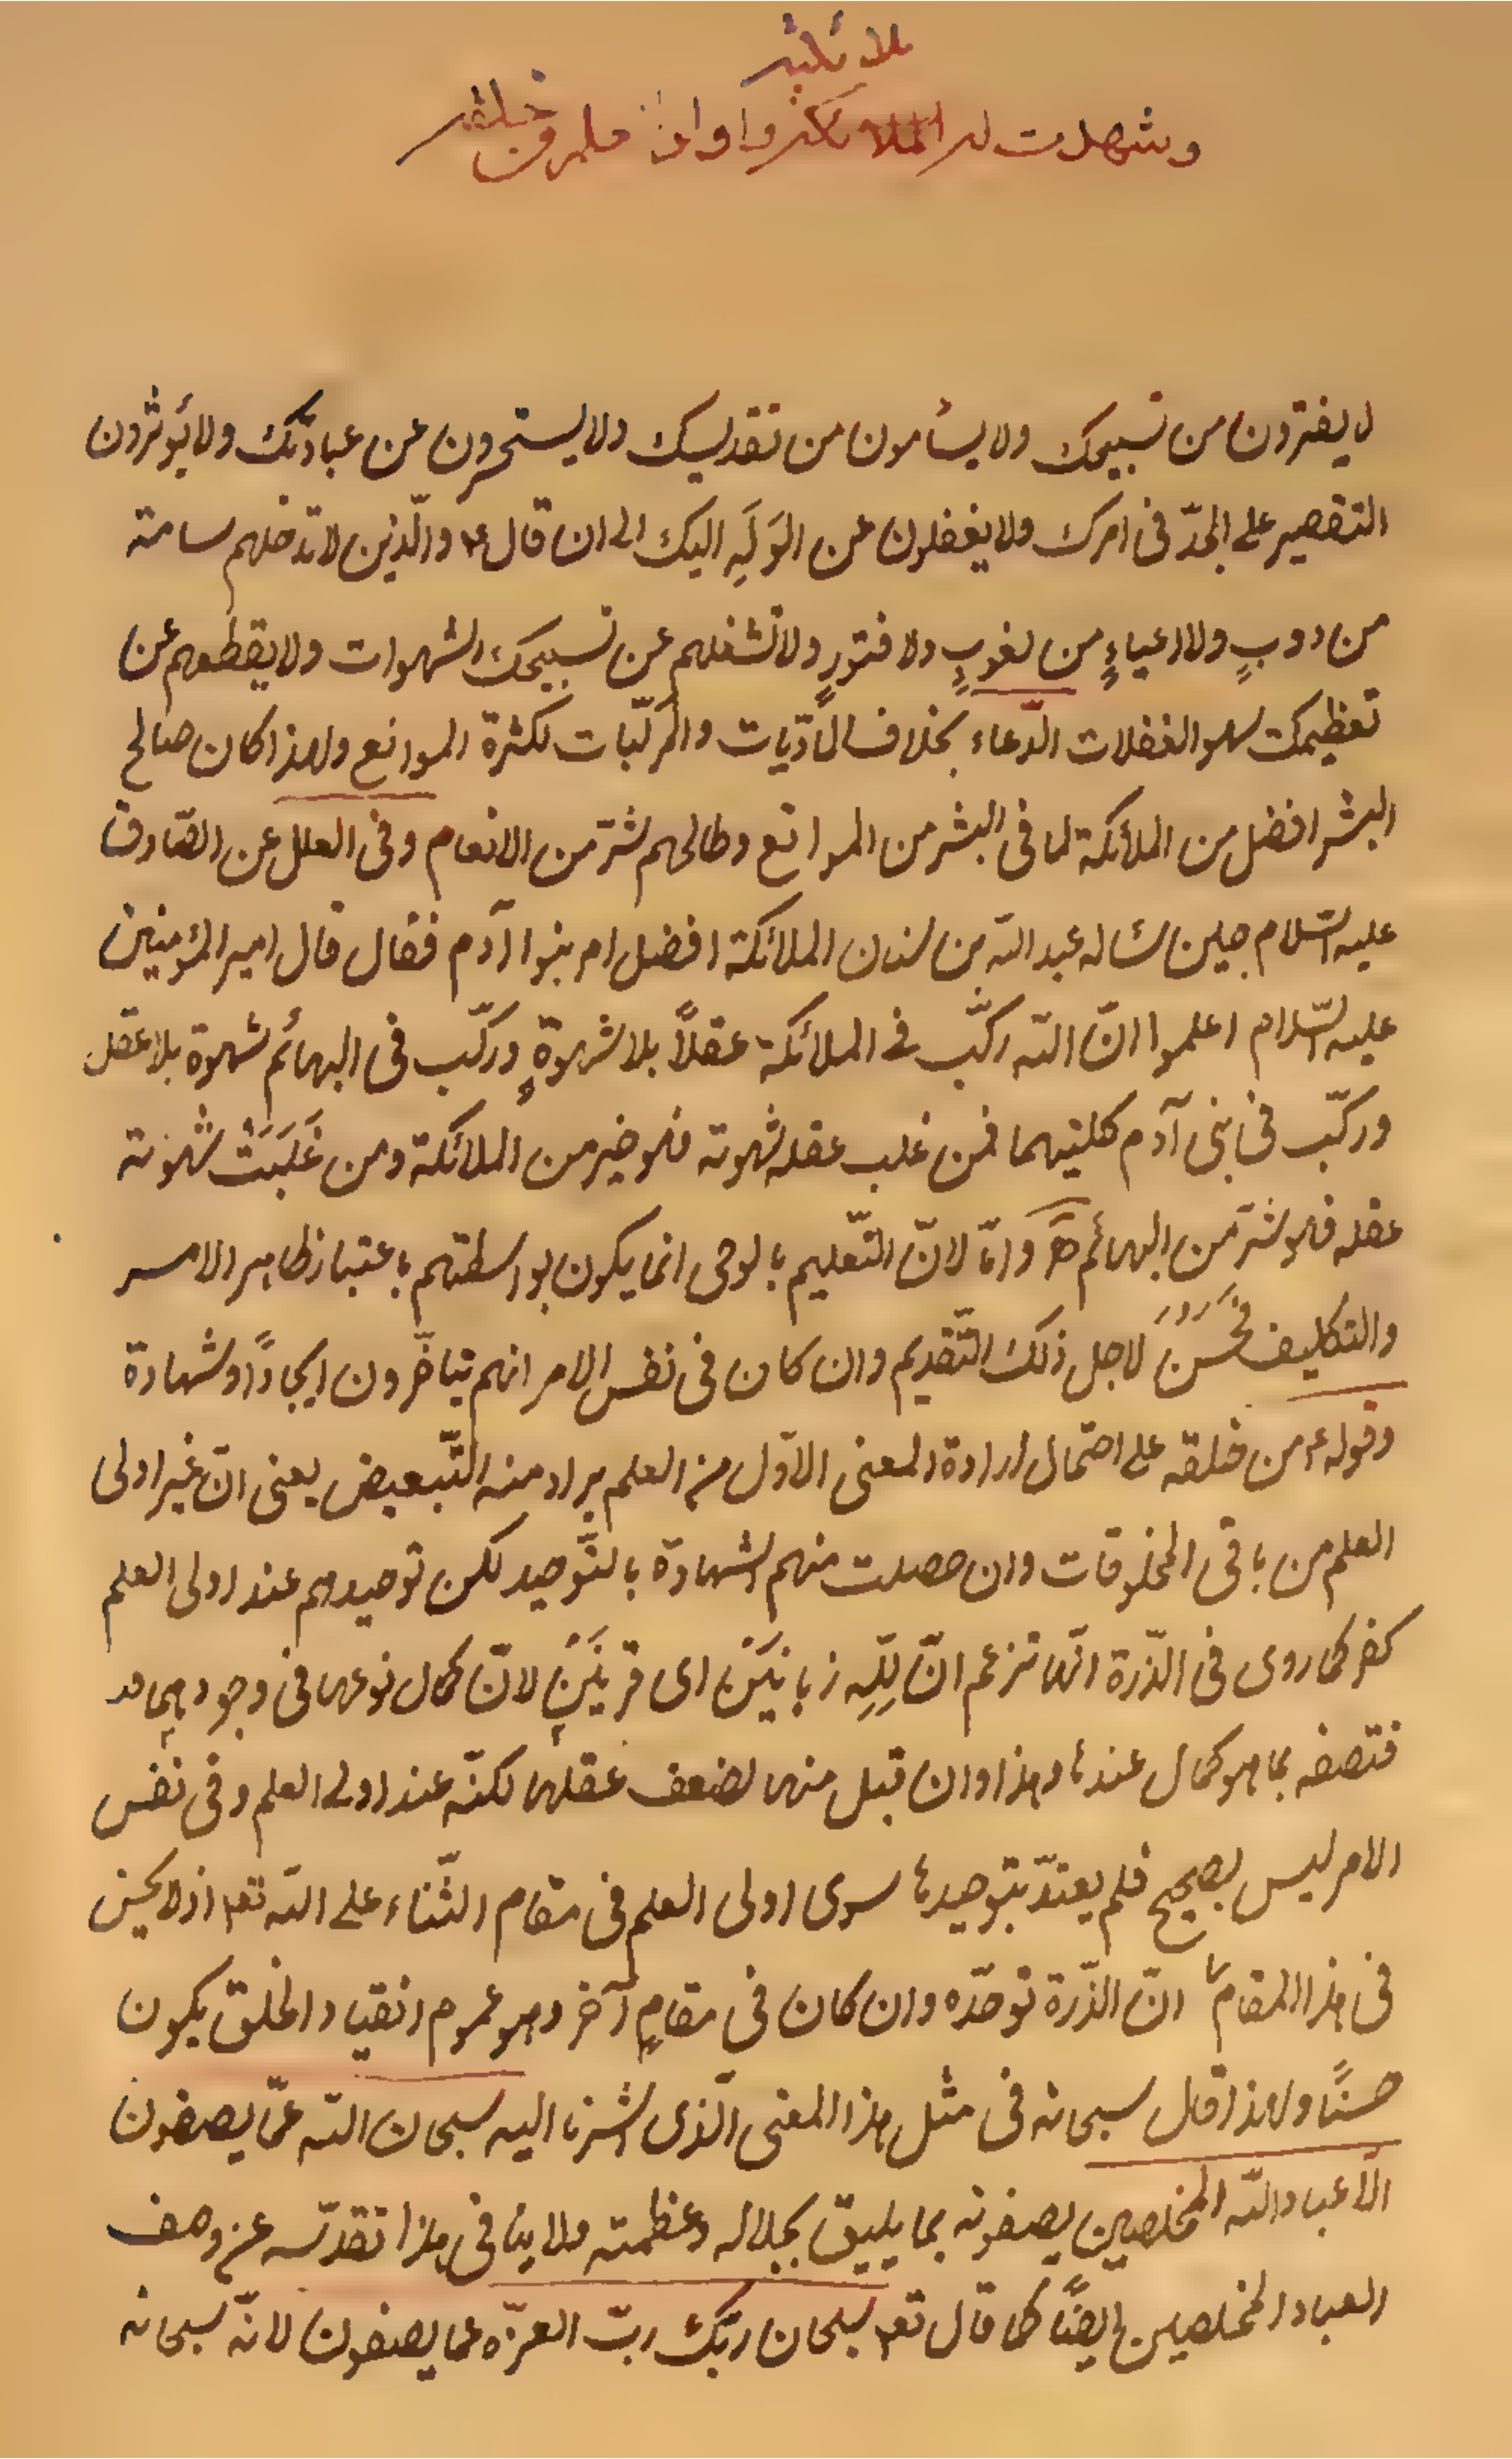 ملائكته
وشهدت له الملائكة واولوا العلم من خلقه
لا يفترون من تسبيحك ولا يسأمون من تقديسك ولا يستحسرون عن عبادتك ولا يؤثرون
التقصير على الجدّ فى امرك ولا يغفلون عن الوَلَهِ اليك الى ان قال ع والّذين لا تدخلهم سامة
من دوبٍ ولا اعياءٍ من لغوبٍ ولا فتورٍ ولا تشغلهم عن تسبيحك الشهوات ولا يقطعهم عن
تعظيمك سهو الغفلات الدّعاء بخلاف المادّيات والمركّبات لكثرة الموانع ولهذا كان صالح
البشر افضل من الملائكة لما فى البشر من الموانع وطالحهم شرّ من الانعام وفى العلل عن الصّادق
عليه السّلام حين سأله عبد الله بن سنان الملائكة افضل ام بنوا آدم فقال قال امير المؤمنين
عليه السّلام اعلموا انّ الله ركّب فى الملائكة عقلًا بلا شهوةٍ وركّب فى البهائم شهوة بلا عقل
وركّب فى بنى آدم كلتيهما فمن غلب عقله شهوته فهو خير من الملائكة ومن غَلَبَتْ شهوته
عقله فهو شرّ من البهائم وامّا لانّ التّعليم بالوحى انما يكون بواسطتهم باعتبار ظاهر الامر
والتكليف فحَسُنَ لاجل ذلك التّقديم وان كان فى نفس الامر انهم يتاخّرون ايجادًا وشهادة
وقوله ع من خلقه على احتمال ارادة المعنى الاوّل من العلم يراد منه التّبعيض يعنى انّ غير اولى
العلم من باقى المخلوقات وان حصلت منهم الشهادة بالتّوحيد لكن توحيدهم عند اولى العلم
كفر كما روى فى الذّرة انّها تزعم انّ لِلّهِ زبانيَيْنِ اى قرنَيْنِ لانّ كمال نوعها فى وجودهما
فتصفه بما هو كمال عندها وهذا وان قبل منها لضعف عقلها لكنّه عند اولى العلم وفى نفس
الامر ليس بصحيح فلم يعتدّ بتوحيدها سوى اولى العلم فى مقام الثّناء على الله تعا اذ لا يحسن
فى هذا المقام انّ الذّرة توحّده وان كان فى مقامٍ آخر وهو عموم انقياد الخلق يكون
حسنًا ولهذا قال سبحانه فى مثل هذا المعنى الّذى اشرنا اليه سبحان الله عمّا يصفون
الّا عباد الله المخلصين يصفونه بما يليق بجلاله وعظمته ولا ينافى هذا تقدّسه عن وصف
العباد المخلصين ايضًا كما قال تعا سبحان ربّك ربّ العزّة عما يصفون لانّه سبحانه